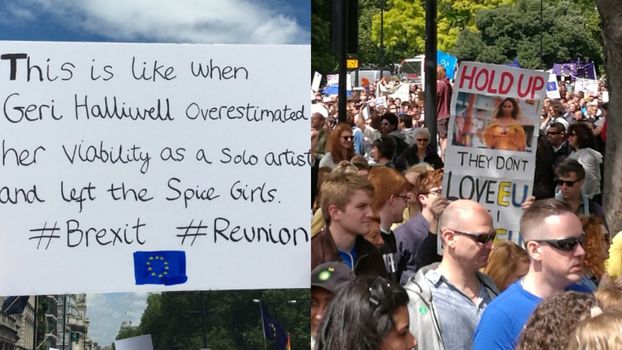 This is like when
Geri Halliwell overestimated
her viability as a solo artist
and left the Spice Girls.
#Brexit #Reunion
HOLD UP
THEY DONT
LOVE EU